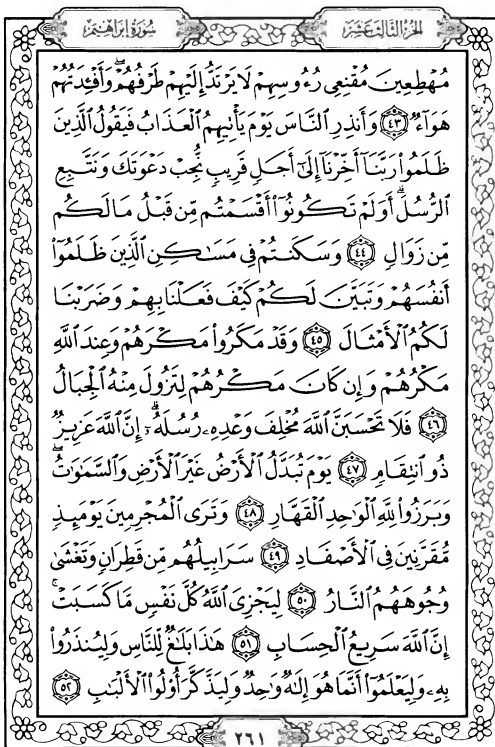 الجزء الثالث عشر
سورة إبراهيم
مُهۡطِعِينَ مُقۡنِعِي رُءُوسِهِمۡ لَا يَرۡتَدُّ إِلَيۡهِمۡ طَرۡفُهُمۡۖ وَأَفۡـِٔدَتُهُمۡ
هَوَآءٞ ٤٣ وَأَنذِرِ ٱلنَّاسَ يَوۡمَ يَأۡتِيهِمُ ٱلۡعَذَابُ فَيَقُولُ ٱلَّذِينَ
ظَلَمُواْ رَبَّنَآ أَخِّرۡنَآ إِلَىٰٓ أَجَلٖ قَرِيبٖ نُّجِبۡ دَعۡوَتَكَ وَنَتَّبِعِ
ٱلرُّسُلَۗ أَوَلَمۡ تَكُونُوٓاْ أَقۡسَمۡتُم مِّن قَبۡلُ مَا لَكُم
مِّن زَوَالٖ ٤٤ وَسَكَنتُمۡ فِي مَسَٰكِنِ ٱلَّذِينَ ظَلَمُوٓاْ
أَنفُسَهُمۡ وَتَبَيَّنَ لَكُمۡ كَيۡفَ فَعَلۡنَا بِهِمۡ وَضَرَبۡنَا
لَكُمُ ٱلۡأَمۡثَالَ ٤٥ وَقَدۡ مَكَرُواْ مَكۡرَهُمۡ وَعِندَ ٱللَّهِ
مَكۡرُهُمۡ وَإِن كَانَ مَكۡرُهُمۡ لِتَزُولَ مِنۡهُ ٱلۡجِبَالُ
٤٦ فَلَا تَحۡسَبَنَّ ٱللَّهَ مُخۡلِفَ وَعۡدِهِۦ رُسُلَهُۥٓۚ إِنَّ ٱللَّهَ عَزِيزٞ
ذُو ٱنتِقَامٖ ٤٧ يَوۡمَ تُبَدَّلُ ٱلۡأَرۡضُ غَيۡرَ ٱلۡأَرۡضِ وَٱلسَّمَٰوَٰتُۖ
وَبَرَزُواْ لِلَّهِ ٱلۡوَٰحِدِ ٱلۡقَهَّارِ ٤٨ وَتَرَى ٱلۡمُجۡرِمِينَ يَوۡمَئِذٖ
مُّقَرَّنِينَ فِي ٱلۡأَصۡفَادِ ٤٩ سَرَابِيلُهُم مِّن قَطِرَانٖ وَتَغۡشَىٰ
وُجُوهَهُمُ ٱلنَّارُ ٥٠ لِيَجۡزِيَ ٱللَّهُ كُلَّ نَفۡسٖ مَّا كَسَبَتۡۚ
إِنَّ ٱللَّهَ سَرِيعُ ٱلۡحِسَابِ ٥١ هَٰذَا بَلَٰغٞ لِّلنَّاسِ وَلِيُنذَرُواْ
بِهِۦ وَلِيَعۡلَمُوٓاْ أَنَّمَا هُوَ إِلَٰهٞ وَٰحِدٞ وَلِيَذَّكَّرَ أُوْلُواْ ٱلۡأَلۡبَٰبِ ٥٢
٢٦١